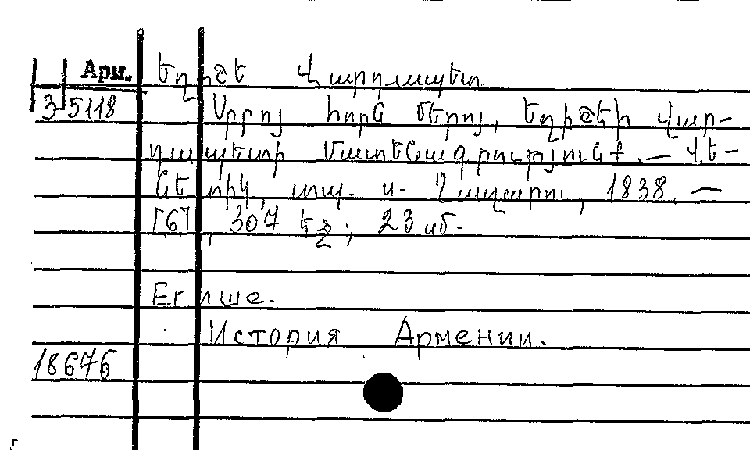 Арм. Եղիշե Վարդապետ
3 5118 Սրբոյ հօրն մերոյ, Եղիշէի վար-
դապետի Մատենագրութիւնք. — Վե-
նետիկ, տպ. ս. Ղազարու, 1838. —
[6], 307 էջ; 23 սմ.
Егише.
История Армении.
18676